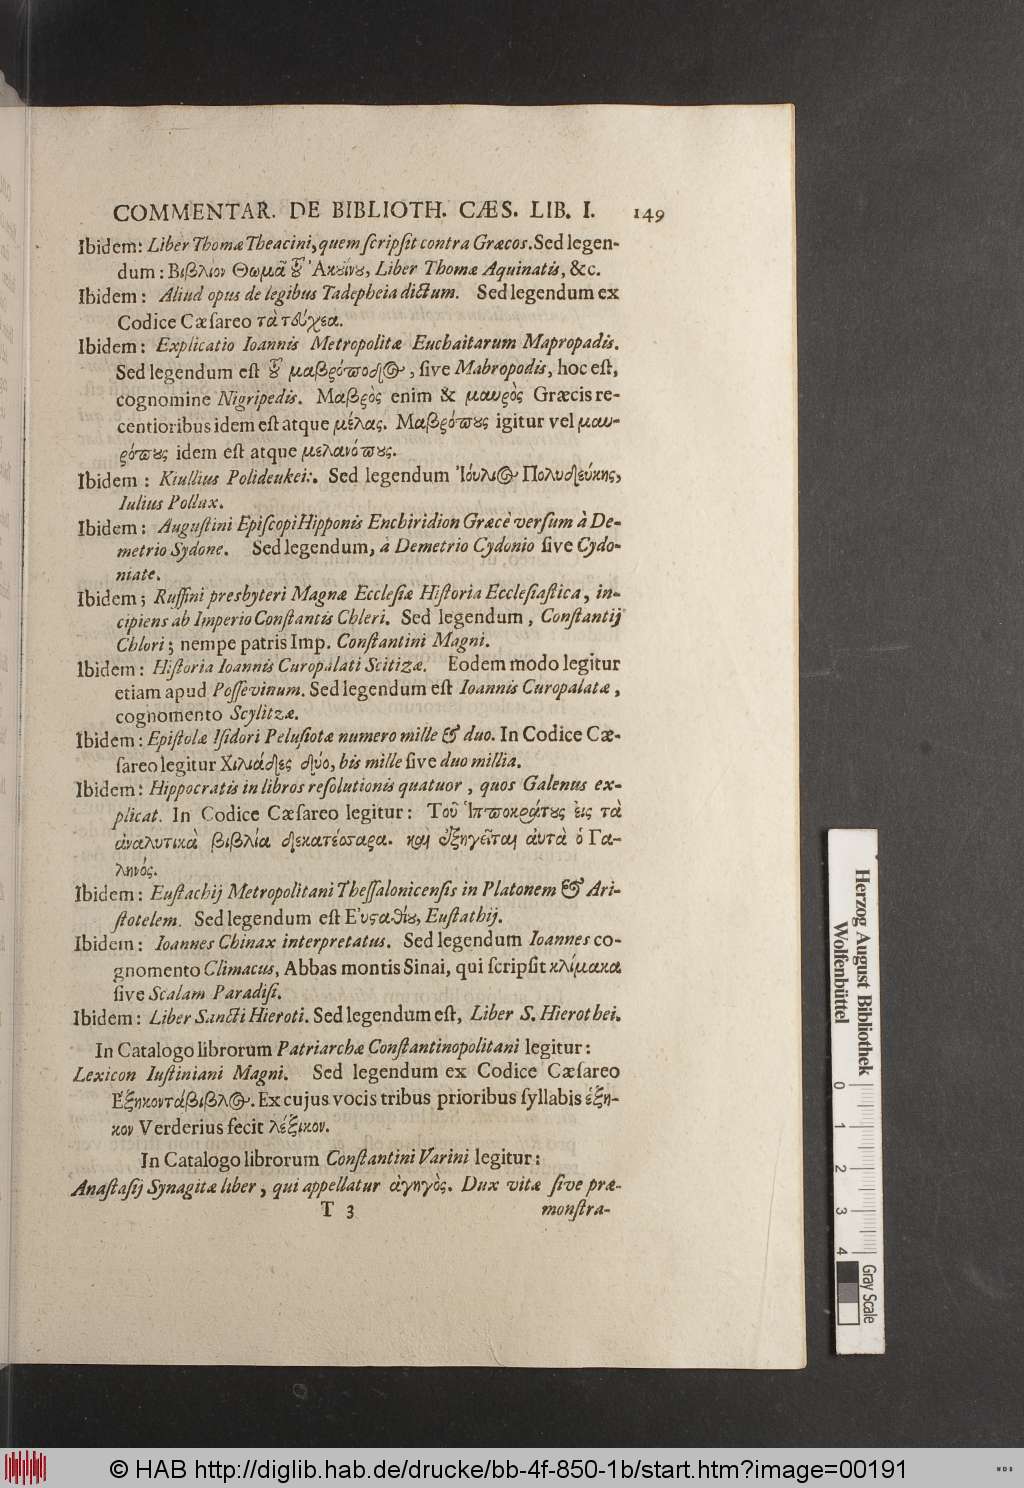 COMMENTAR. DE BIBLIOTH. CÆS. LIB. I. 149
Ibidem: Liber Thomæ Theacini, quem ſcripſit contra Græcos. Sed legen-
dum: Βιβλίον Θωμᾶ τȣ͂ Ἀκȣίνȣ, Liber Thomæ Aquinatis, &c.
Ibidem: Aliud opus de legibus Tadepheia dictum. Sed legendum ex
Codice Cæſareo τὰ τεύχεα.
Ibidem: Explicatio Ioannis Metropolitæ Euchaitarum Mapropadis.
Sed legendum eſt τȣ͂ μαβρόποδος, ſive Mabropodis, hoc eſt,
cognomine Nigripedis. Μαβρὸς enim & μαυρὸς Græcis re-
centioribus idem eſt atque μέλας. Μαβρόπȣς igitur vel μαυ-
ρόπȣς idem eſt atque μελανόπȣς.
Ibidem: Kiullius Polideukei:. Sed legendum Ἰούλιος Πολυδεύκης,
Iulius Pollux.
Ibidem: Auguſtini Epiſcopi Hipponis Enchiridion Græcè verſum à De-
metrio Sydone. Sed legendum, à Demetrio Cydonio ſive Cydo-
niate.
Ibidem; Ruffini presbyteri Magnæ Eccleſiæ Hiſtoria Eccleſiaſtica, in-
cipiens ab Imperio Conſtantis Chleri. Sed legendum, Conſtantij
Chlori; nempe patris Imp. Conſtantini Magni.
Ibidem: Hiſtoria Ioannis Curopalati Scitizæ. Eodem modo legitur
etiam apud Poſſevinum. Sed legendum eſt Ioannis Curopalatæ,
cognomento Scylitzæ.
Ibidem: Epiſtolæ Iſidori Peluſiotæ numero mille & duo. In Codice Cæ-
ſareo legitur Χιλιάδες δύο, bis mille ſive duo millia.
Ibidem: Hippocratis in libros reſolutionis quatuor, quos Galenus ex-
plicat. In Codice Cæſareo legitur: Τοῦ Ἱπποκράτȣς εἰς τὰ
ἀναλυτικὰ βιβλία δεκατέσσαρα. καὶ ἐξηγεῖται αὐτὰ ὁ Γα-
ληνός.
Ibidem: Euſtachij Metropolitani Theſſalonicenſis in Platonem & Ari-
ſtotelem. Sed legendum eſt Εὐςαθίȣ, Euſtathij.
Ibidem: Ioannes Chinax interpretatus. Sed legendum Ioannes co-
gnomento Climacus, Abbas montis Sinai, qui ſcripſit κλίμακα
ſive Scalam Paradiſi.
Ibidem: Liber Sancti Hieroti. Sed legendum eſt, Liber S. Hierothei.
In Catalogo librorum Patriarchæ Conſtantinopolitani legitur:
Lexicon Iuſtiniani Magni. Sed legendum ex Codice Cæſareo
Ἑξηκοντάβιβλος. Ex cujus vocis tribus prioribus ſyllabis ἑξη-
κον Verderius fecit λέξικον.
In Catalogo librorum Conſtantini Varini legitur:
Anaſtaſij Synagitæ liber, qui appellatur ἀγηγὸς. Dux vitæ ſive præ-
T 3 monſtra-
Herzog August Bibliothek
Wolfenbüttel
0 1 2 3 4
Gray Scale
© HAB http://diglib.hab.de/drucke/bb-4f-850-1b/start.htm?image=00191